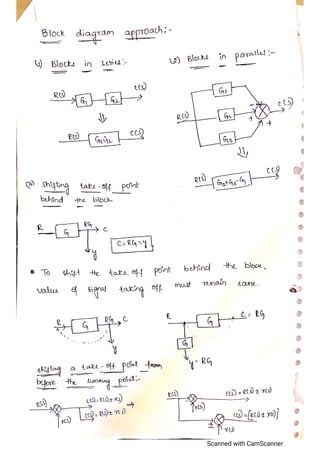 Block diagram approach:-
1) Blocks in series:-
R(s) G1 G2 C(s)
R(s) G1G2 C(s)
2) Blocks in parallel:-
R(s) G1 G2 G3 - + + C(s)
R(s) G2+G3-G1 C(s)
(3) Shifting take-off point
behind the block
R G RG C
y
C=RG=y
* To shift the take off point behind the block,
value of signal taking off must remain same.
R G RG C
y
R G C = RG
G
y = RG
shifting a take-off point from
before the summing point:-
R(s) C(s)=R(s)±x(s)
x(s) C(s)=R(s)±x(s)
R(s) C(s)=R(s)±x(s)
x(s)
C(s)=[R(s)±x(s)]
x(s)
Scanned with CamScanner